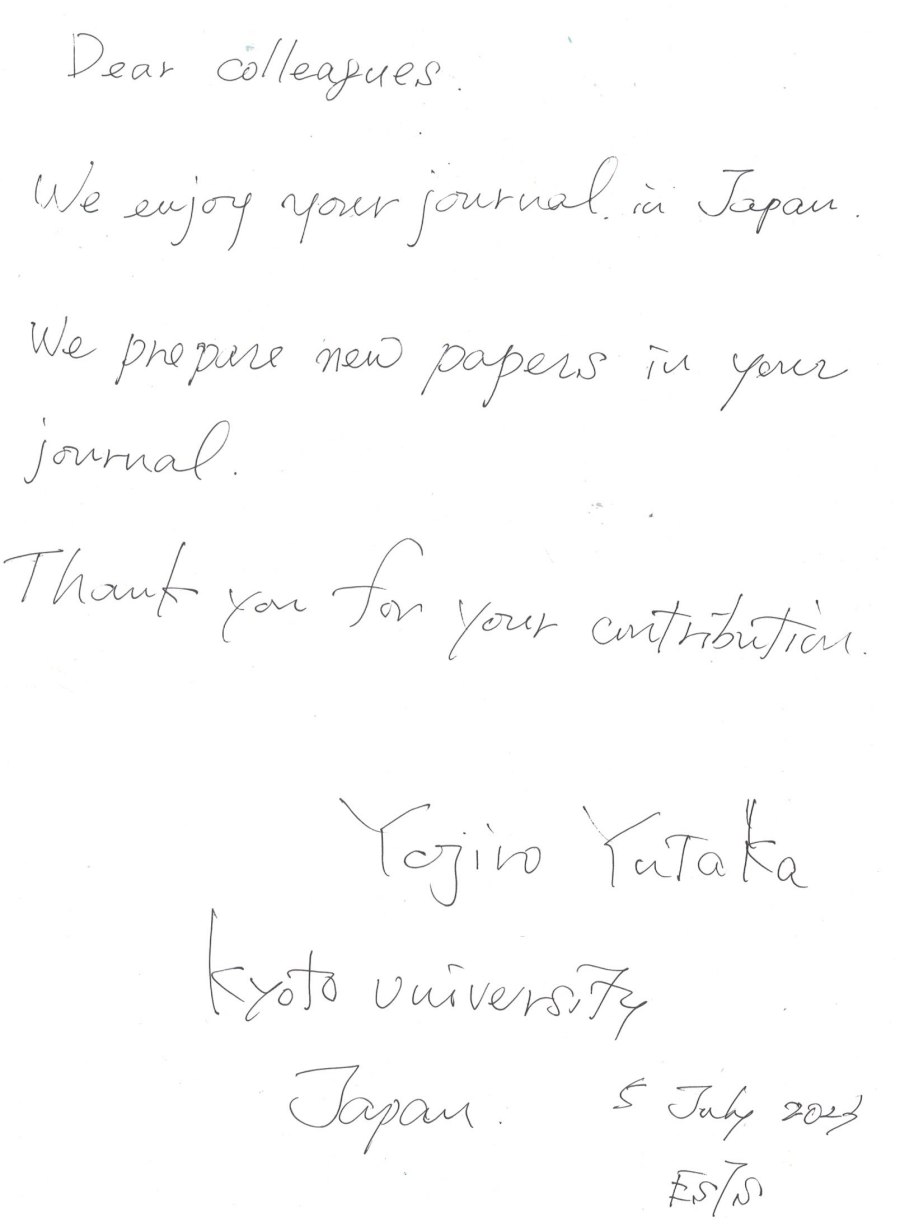 Dear colleagues.
We enjoy your journal. in Japan.
We prepare new papers in your
journal.
Thank you for your contribution.
Yojiro Yutaka
Kyoto University
Japan.
5 July 2023